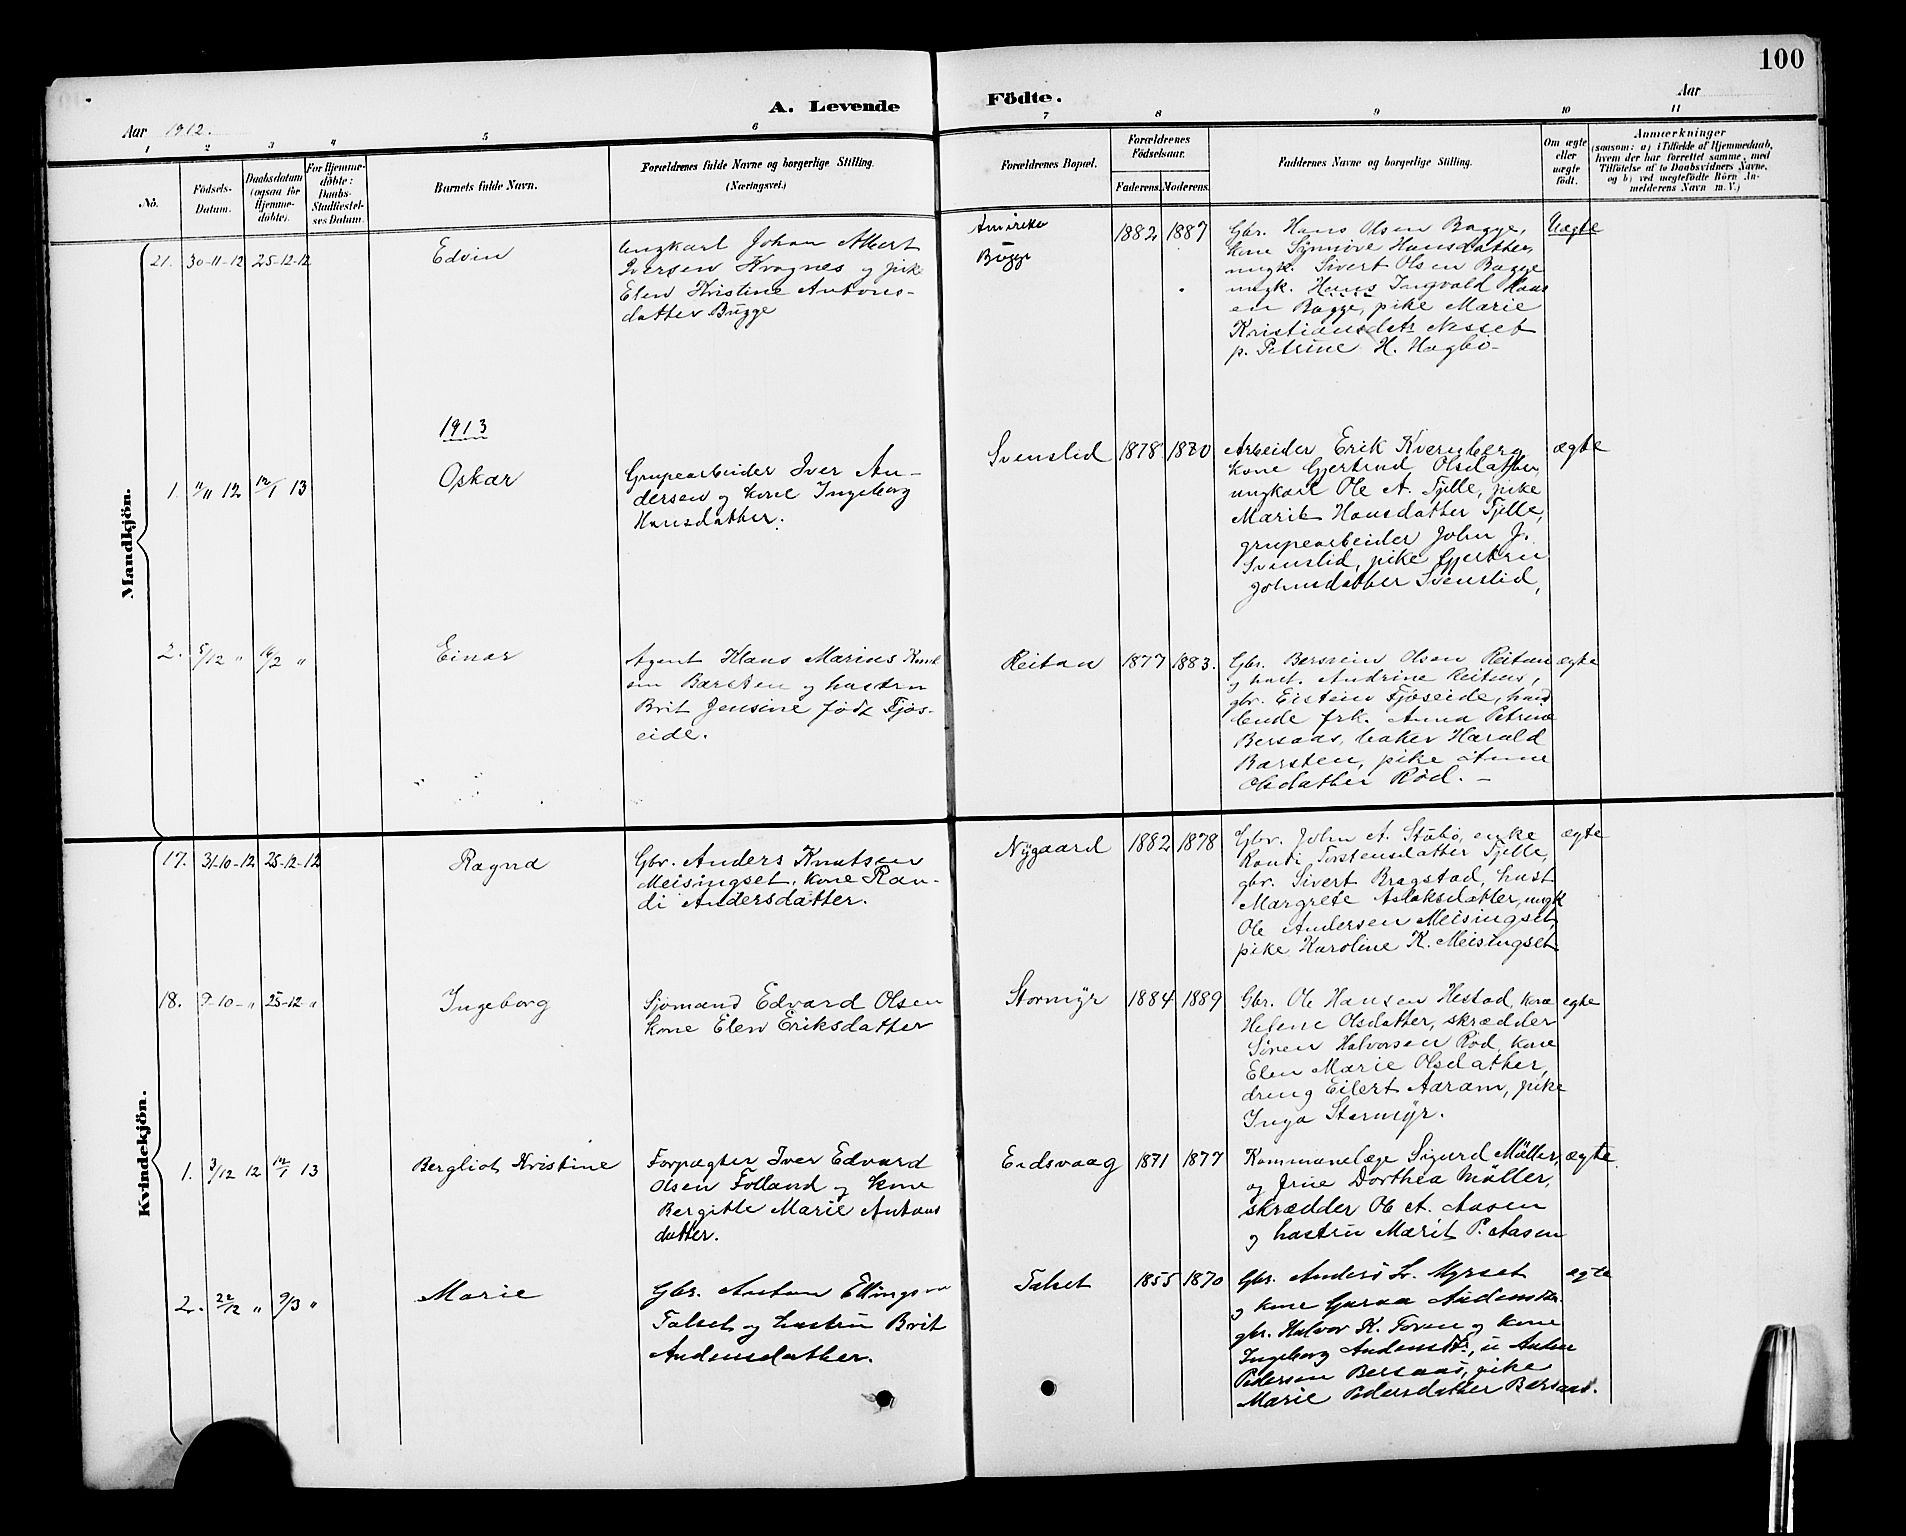 100
A. Levende Födte.
Aar 1912.
Aar
1 2 3 4 5 6 7 8 9 10 11
No.
Födsels-
Datum.
Daabsdatum
(ogsaa för
Hjemme-
döbte).
For Hjemme-
döbte:
Daabs-
Stadfæstel-
ses Datum.
Barnets fulde Navn.
Forældrenes fulde Navne og borgerlige Stilling.
(Næringsvei.)
Forældrenes Bopæl.
Forældrenes
Födselsaar.
Faderens. Moderens.
Faddernes Navne og borgerlige Stilling.
Om ægte
eller
uægte
födt.
Anmærkninger
(saasom: a) i Tilfælde af Hjemmedaab,
hvem der har forrettet samme, med
Tilföielse af to Daabsvidners Navne,
og b) ved uægtefödte Börn An-
melderens Navn m. V.)
Mandkjön.
21. 30-11-12 25-12-12
Edvin
Ungkarl Johan Albert
Iversen Kvognes og pike
Elen Kristine Antons-
datter Bugge
Amerika
Bugge
1882 1887
Gbr. Hans Olsen Bagge,
kone Synnøve Hansdatter,
ungk. Sivert Olsen Bagge
ungk. Hans Ingvald Hans
en Bagge, pike Marie
Kristiansdtr Nesset
p. Petrine H. Hagbö-
Uægte
1913
1. 11/11 12 12/1 13
Oskar
Grupearbeider Iver An-
dersen og kone Ingeborg
Hansdatter.
Svenslid
1878 1880
Arbeider Erik Kvernberg
kone Gjertrud Olsdatter
ungkarl Ole A. Tjelle, pike
Marit Hansdatter Tjelle,
grupearbeider John J.
Svenslid, pike Gjertru
Johnsdatter Svenslid,
ægte
2. 5/12 " 16/2 "
Einar
Agent Klaus Marius Knud
sen Barsten og hustru
Brit Jensine født Fjøs-
eide.
Reitan
1877 1883.
Gbr. Berstein Olsen Reitan
og hust. Andrine Reitan,
gbr. Eistein Fjøseide, hand
lende frk. Anna Petrine
Bersaas, baker Harald
Barsten, pike Anne
Olsdatter Rød. -
ægte
Kvindekjön.
17. 31-10-12 25-12-12
Ragna
Gbr. Anders Knutsen
Meisingset, kone Ran-
di Andersdatter.
Nygaard
1882 1878
Gbr. John A. Stubø, enke
Randi Torstensdatter Tjelle,
gbr. Sivert Bragstad, hust
Margrete Aslaksdatter, ungk
Ole Andersen Meisingset,
pike Karoline K. Meisingset
ægte
18. 9-10-" 25-12-"
Ingeborg
Sjømand Edvard Olsen
kone Elen Eriksdatter
Stormyr
1884 1889
Gbr. Ole Hansen Hestad, kone
Helene Olsdatter, skrædder
Søren Halvorsen Rød, kone
Elen Marie Olsdatter,
dreng Eilert Aaram, pike
Inga Stormyr.
ægte
1. 3/12 12 12/1 13
Bergliot Kristine
Forpagter Iver Edvard
Olsen Folland og kone
Bergitte Marie Antons
datter.
Eidsvaag
1871 1877
Kommunelæge Sigurd Müller,
og frue Dorthea Müller,
skrædder Ole A. Aasen
og hustru Marit P. Aasen
ægte
2. 22/12 " 9/3 "
Marie
Gbr. Anton Ellingsen
Talset og hustru Brit
Andersdatter.
Talset
1855 1870
Gbr. Anders L. Myrset
og kone Guraa
gbr. Halvor K. Toven og kone
Ingeborg
Pedersen Bersaas, pike
Marie Pedersdatter Bersaas.
ægte